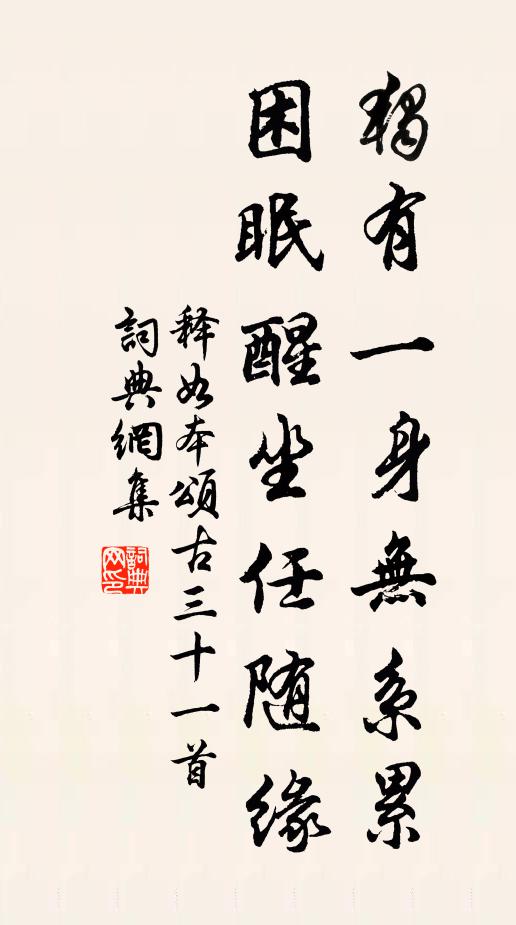 獨有一身無系累
困眠醒坐任随緣
释如本頌古三十一首
詞典網集
詞典网印